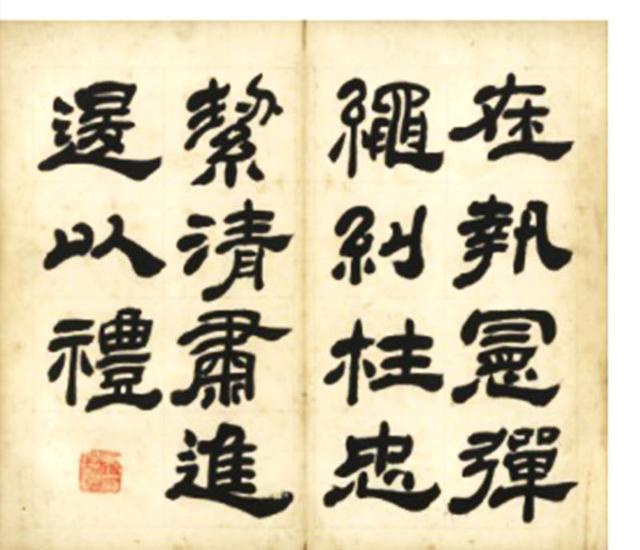 在執憲彈
繩糾枉忠
絜清肅進
退以禮